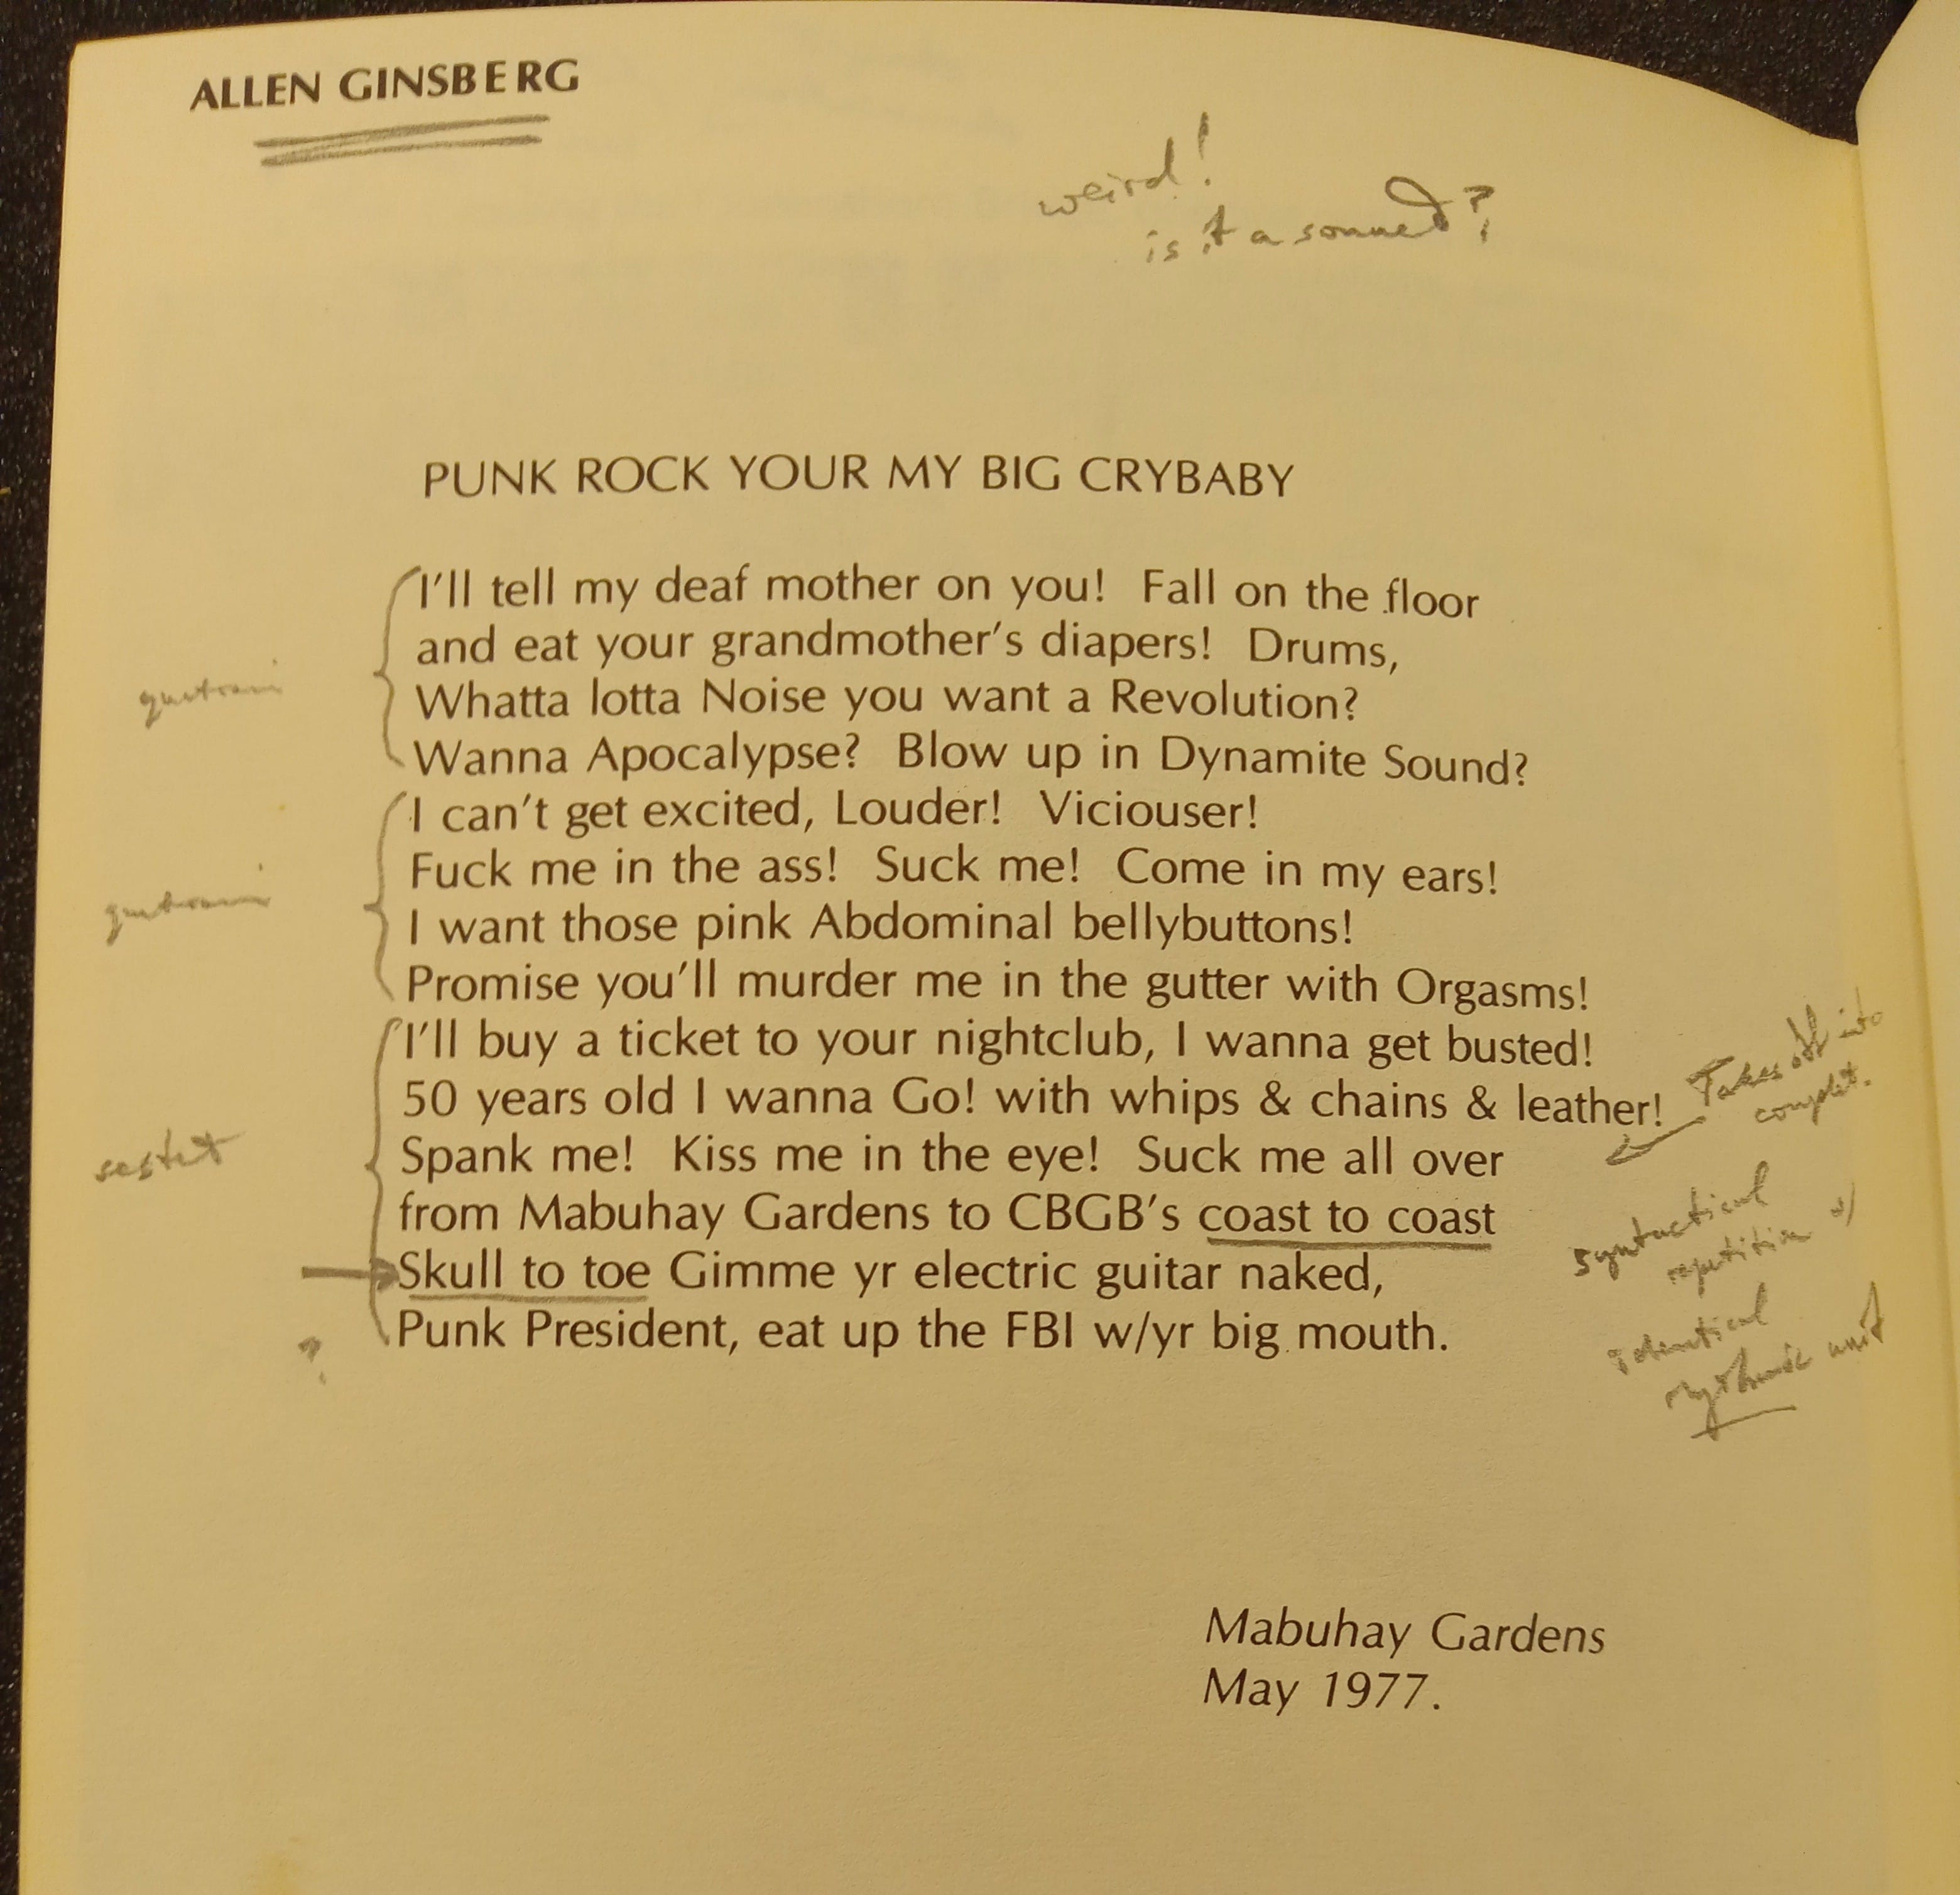 ALLEN GINSBERG
weird!
is it a sonnet?
PUNK ROCK YOUR MY BIG CRYBABY
I'll tell my deaf mother on you! Fall on the floor
and eat your grandmother's diapers! Drums,
quatrain
Whatta lotta Noise you want a Revolution?
Wanna Apocalypse? Blow up in Dynamite Sound?
I can't get excited, Louder! Viciouser!
Fuck me in the ass! Suck me! Come in my ears!
quatrain
I want those pink Abdominal bellybuttons!
Promise you'll murder me in the gutter with Orgasms!
I'll buy a ticket to your nightclub, I wanna get busted!
50 years old I wanna Go! with whips & chains & leather!
Takes off into
couplet.
sestet
Spank me! Kiss me in the eye! Suck me all over
from Mabuhay Gardens to CBGB's coast to coast
Skull to toe Gimme yr electric guitar naked,
Punk President, eat up the FBI w/yr big mouth.
?
syntactical
repetition w/
identical
rhythmic unit
Mabuhay Gardens
May 1977.